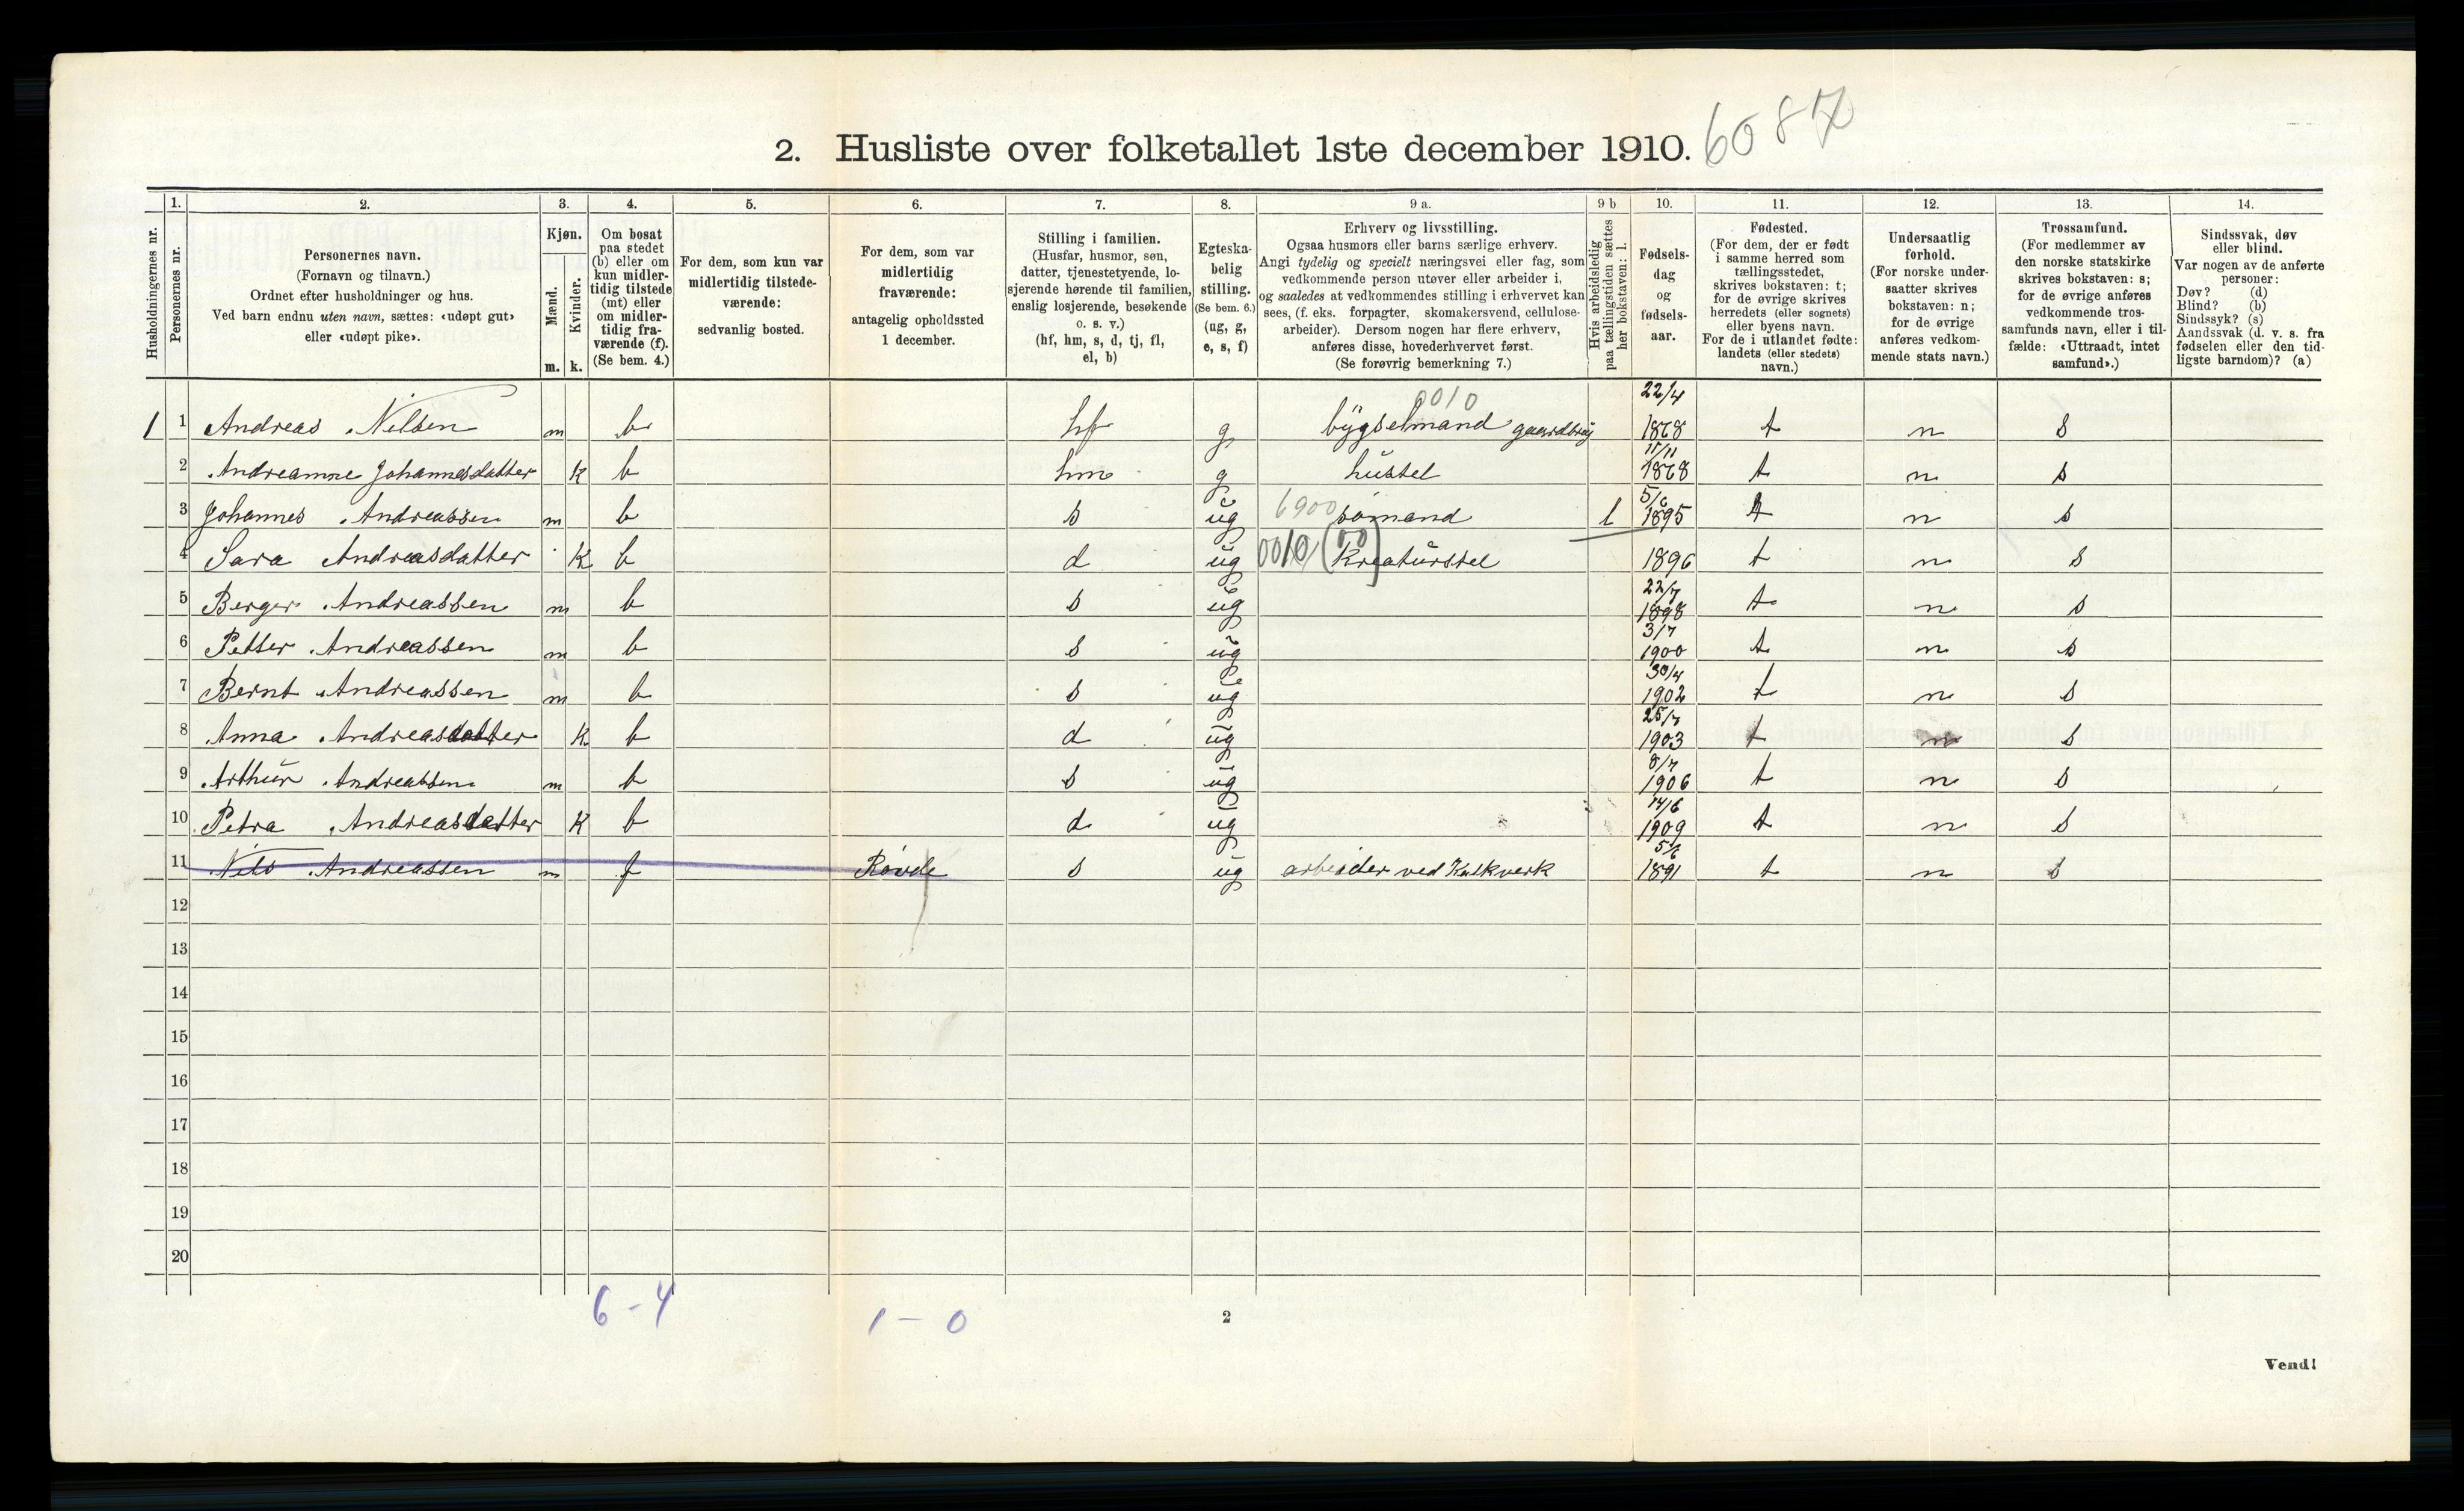 2. Husliste over folketallet 1ste december 1910. 6087
1. 2. 3. 4. 5. 6. 7. 8. 9 a. 9 b 10. 11. 12. 13. 14.
Husholdningernes nr.
Personernes nr.
Personernes navn.
(Fornavn og tilnavn.)
Ordnet efter husholdninger og hus.
Ved barn endnu uten navn, sættes: «udøpt gut»
eller «udøpt pike».
Kjøn.
Mænd.
Kvinder.
m. k.
Om bosat
paa stedet
(b) eller om
kun midler-
tidig tilstede
(mt) eller
om midler-
tidig fra-
værende (f).
(Se bem. 4.)
For dem, som kun var
midlertidig tilstede-
værende:
sedvanlig bosted.
For dem, som var
midlertidig
fraværende:
antagelig opholdssted
1 december.
Stilling i familien.
(Husfar, husmor, søn,
datter, tjenestetyende, lo-
sjerende hørende til familien,
enslig losjerende, besøkende
o. s. v.)
(hf, hm, s, d, tj, fl,
el, b)
Egteska-
belig
stilling.
(Se bem. 6.)
(ug, g,
e, s, f)
Erhverv og livsstilling.
Ogsaa husmors eller barns særlige erhverv.
Angi tydelig og specielt næringsvei eller fag, som
vedkommende person utøver eller arbeider i,
og saaledes at vedkommendes stilling i erhvervet kan
sees, (f. eks. forpagter, skomakersvend, cellulose-
arbeider). Dersom nogen har flere erhverv,
anføres disse, hovederhvervet først.
(Se forøvrig bemerkning 7.)
Hvis arbeidsledig
paa tællingstiden sættes
her bokstaven: l.
Fødsels-
dag
og
fødsels-
aar.
Fødested.
(For dem, der er født
i samme herred som
tællingsstedet,
skrives bokstaven: t;
for de øvrige skrives
herredets (eller sognets)
eller byens navn.
For de i utlandet fødte:
landets (eller stedets)
navn.)
Undersaatlig
forhold.
(For norske under-
saatter skrives
bokstaven: n;
for de øvrige
anføres vedkom-
mende stats navn.)
Trossamfund.
(For medlemmer av
den norske statskirke
skrives bokstaven: s;
for de øvrige anføres
vedkommende tros-
samfunds navn, eller i til-
fælde: «Uttraadt, intet
samfund».)
Sindssvak, døv
eller blind.
Var nogen av de anførte
personer:
Døv? (d)
Blind? (b)
Sindssyk? (s)
Aandssvak (d. v. s. fra
fødselen eller den tid-
ligste barndom)? (a)
0010 22/4
1 1 Andreas Nilsen m b hf g bygselmand gaardbrug 1868 t n s
11/11
2 Andreanne Johannesdatter k b hm g hustel 1868 t n s
5/6
3 Johannes Andreassen m b s ug 6900 sømand l 1895 t n s
4 Sara Andreasdatter k b d ug 0010 (00) Kreaturstel 1896 t n s
22/7
5 Berger Andreassen m b s ug 1898 t n s
3/7
6 Petter Andreassen m b s ug 1900 t n s
30/4
7 Bernt Andreassen m b s ug 1902 t n s
25/7
8 Anna Andreasdatter k b d ug 1903 t n s
8/7
9 Arthur Andreassen m b s ug 1906 t n s
14/6
10 Petra Andreasdatter k b d ug 1909 t n s
5/6
11 Nils Andreassen m f Røvde s ug arbeider ved Kalkverk 1891 t n s
12
13
14
15
16
17
18
19
20
6 - 4
1 - 0
2
Vend!